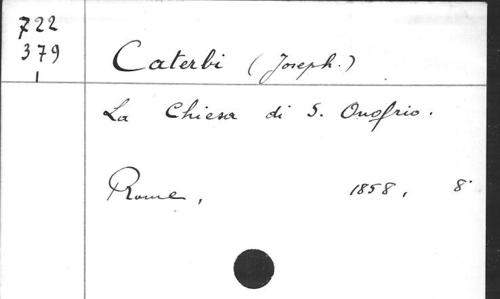 722
379
1
Caterbi (Joseph.)
La Chiesa di S. Onofrio.
Rome, 1858, 8°